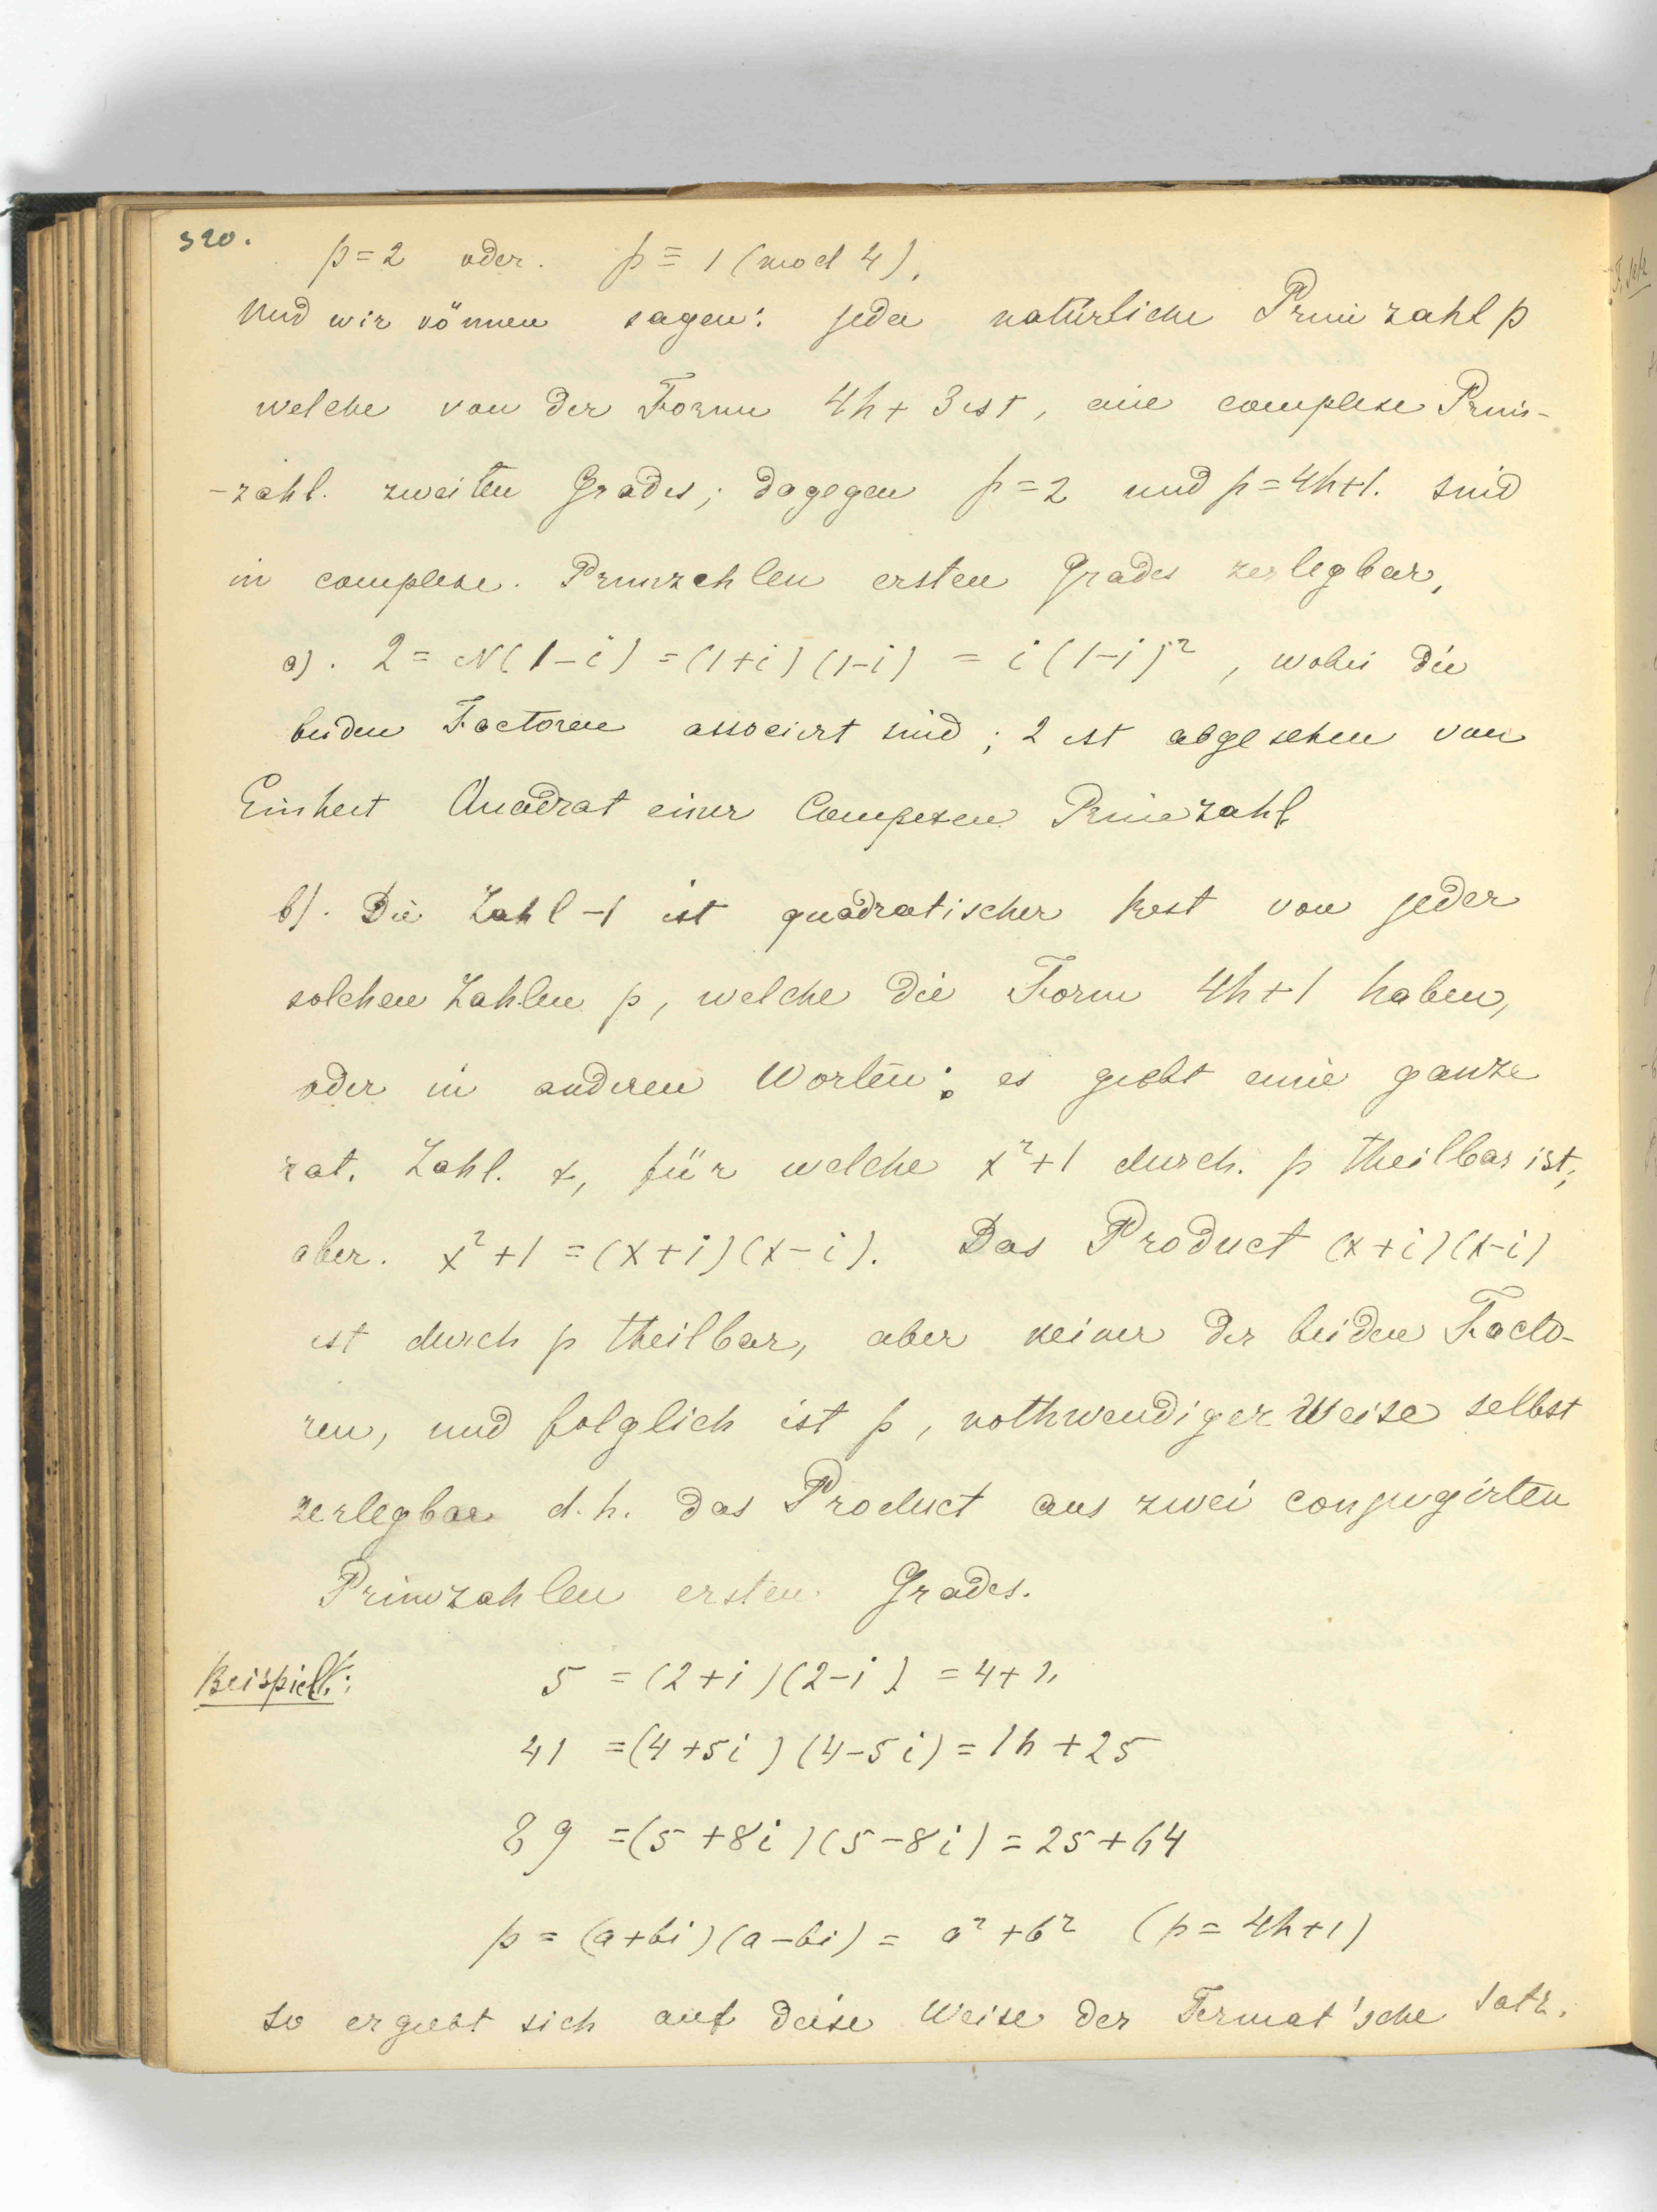 320.
p = 2 oder. p ≡ 1 (mod 4),
Und wir können sagen: jede natürliche Primzahl p
welche von der Form 4h + 3 ist, eine complexe Prim-
-zahl. zweiten Grades; dagegen p = 2 und p = 4h+1. sind
in complexe. Primzahlen ersten Grades zerlegbar,
a). 2 = N(1-i) = (1+i)(1-i) = i(1-i)², wobei die
beiden Factoren associirt sind; 2 ist abgesehen von
Einheit Quadrat einer Compexen Primzahl
b). Die Zahl -1 ist quadratischer Rest von jeder
solchen Zahlen p, welche die Form 4h+1 haben,
oder in anderen Worten: es giebt eine ganze
rat. Zahl. x, für welche x²+1 durch. p theilbar ist;
aber. x²+1 = (x+i)(x-i). Das Product (x+i)(x-i)
ist durch p theilbar, aber keiner der beiden Facto-
ren, und folglich ist p, nothwendiger Weise selbst
zerlegbar d.h. das Product aus zwei conjugirten
Primzahlen ersten Grades.
Beispiel: 5 = (2+i)(2-i) = 4+1,
41 = (4+5i)(4-5i) = 16+25
89 = (5+8i)(5-8i) = 25+64
p = (a+bi)(a-bi) = a²+b² (p = 4h+1)
so ergiebt sich auf diese Weise der Fermat'sche Satz.